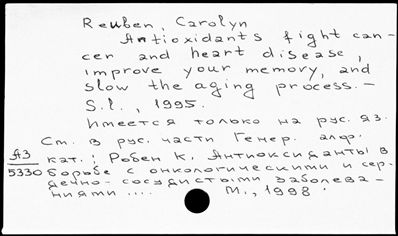 Reuben, Carolyn
Antioxidants fight can-
cer and heart disease,
improve your memory, and
slow the aging process. –
S.l., 1995.
Имеется только на рус. яз.
См. в рус. части Генер. алф.
АЗ кат.: Робен К. Антиоксиданты в
5330 борьбе с онкологическими и сер-
дечно-сосудистыми заболева-
ниями .... М., 1998.